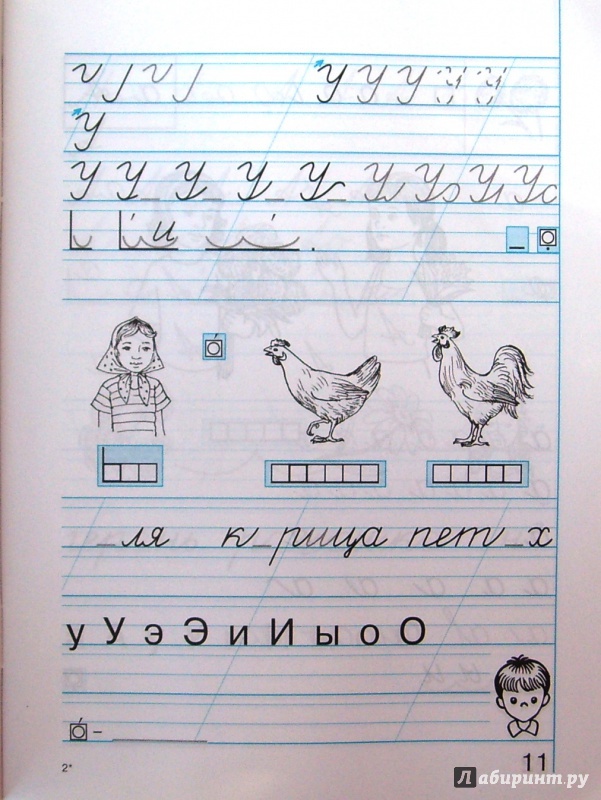 У У У У У
У
У У_ У_ У_ У_ Ул Уз Уч Ус
и .
_ля к_рица пет_х
у У э Э и И ы о О
–
2* 11
Лабиринт.ру